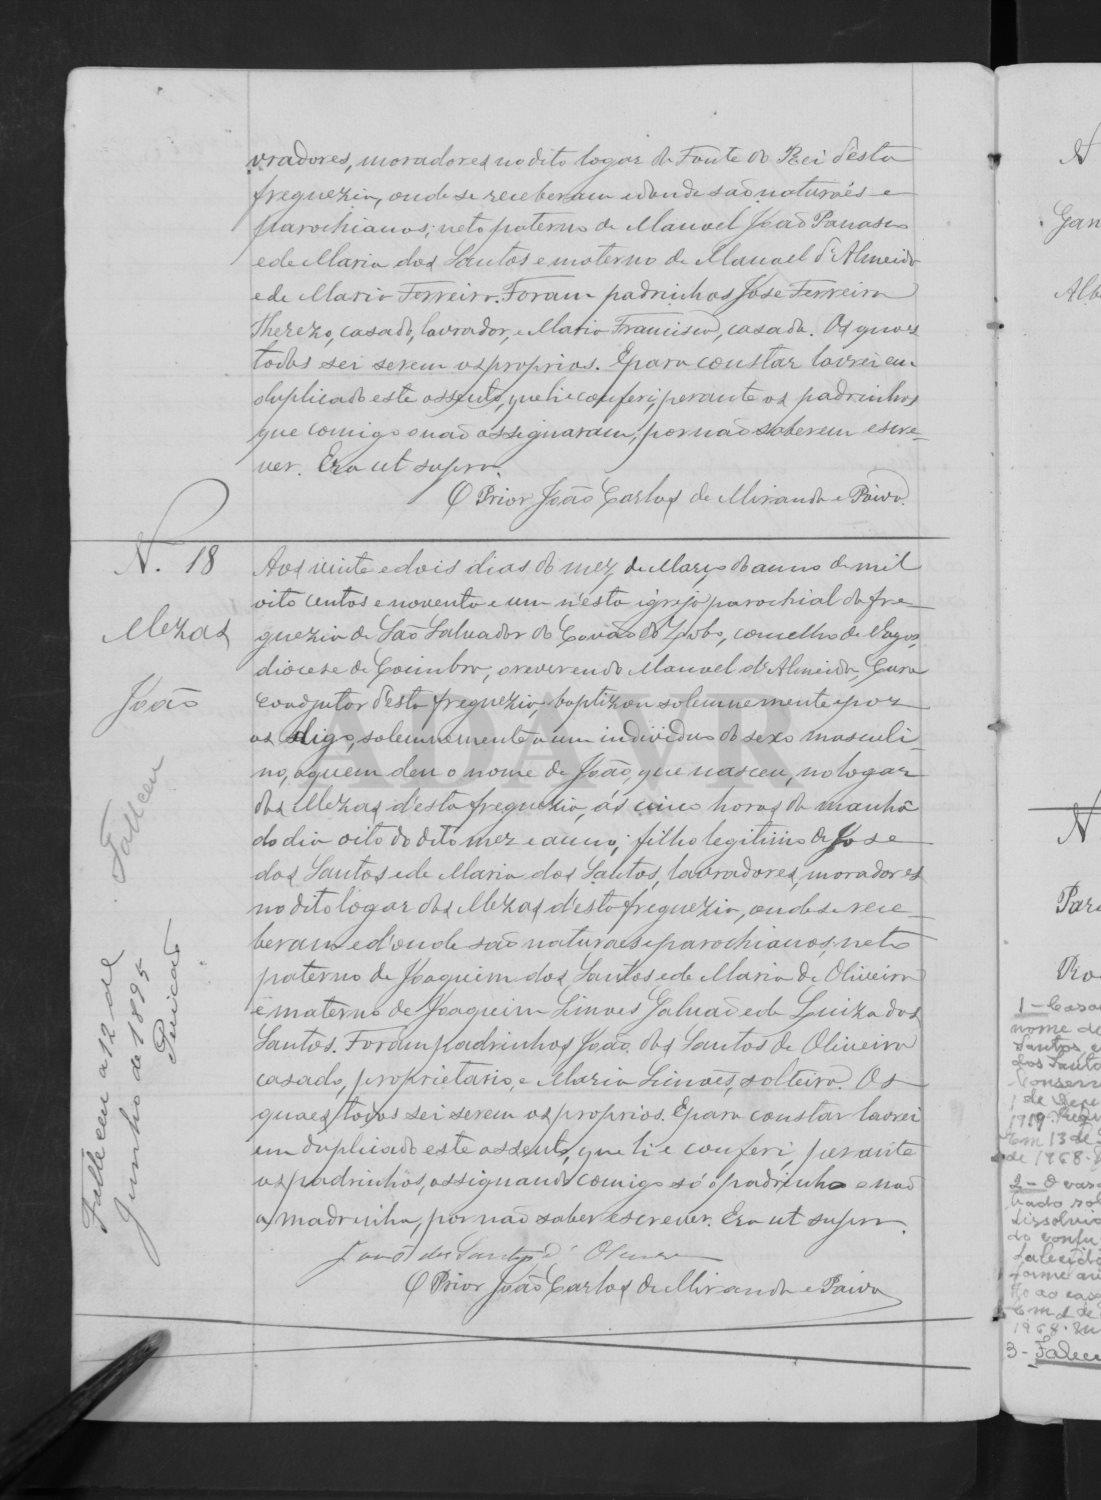 vradores, moradores no dito logar da Fonte do Rei d'esta
freguezia, onde se receberam e donde são naturaes e
parochianos; neto paterno de Manoel João Panasco
e de Maria dos Santos e materno de Manoel d'Almeida
e de Maria Ferreira. Foram padrinhos José Ferreira
Therezo, casado, lavrador, e Maria Francisca, casada. Os quaes
todos sei serem os proprios. E para constar lavrei em
duplicado este assento, que li e conferi, perante os padrinhos
que comigo o não assignaram, por não saberem escre-
ver. Era ut supra.
O Prior João Carlos de Miranda e Paiva.
N. 18
Mezas
João
Falleceu
Falleceu a 12 de
Junho de 1895
Aos vinte e dois dias do mez de Março do anno de mil
oito centos e noventa e um n'esta igreja parochial da fre-
guezia de São Salvador do Covão do Lobo, concelho de Vagos,
diocese de Coimbra, o reverendo Manoel d'Almeida, Cura
coadjutor d'esta freguezia, baptizou solemnemente e poz
os digo, solemnemente a um individuo do sexo masculi-
no, a quem deu o nome de João, que nasceu, no logar
das Mezas d'esta freguezia, ás cinco horas da manhã
do dia oito do dito mez e anno; filho legitimo de José
dos Santos e de Maria dos Santos, lavradores, moradores
no dito logar das Mezas d'esta freguezia, onde se rece-
beram e d'onde são naturaes e parochianos; neto
paterno de Joaquim dos Santos e de Maria de Oliveira
e materno de Joaquim Simoes Galvão e de Luiza dos
Santos. Foram padrinhos João dos Santos de Oliveira
casado, proprietario, e Maria Simões, solteira. Os
quaes todos sei serem os proprios. E para constar lavrei
em duplicado este assento, que li e conferi, perante
os padrinhos, assignando comigo só o padrinho e não
a madrinha, por não saber escrever. Era ut supra.
João dos Santos d' Oliveira
O Prior João Carlos de Miranda e Paiva
ADAVR
N
Gan
Alb
N
Par
Ro
1 - Casou
nome de
Santos e
dos Santo
Conserv
1 de
1919.
Em 13 de
de 1968.
2 - O casa
dissolvid
do
falecido
1968.
3 - Falec